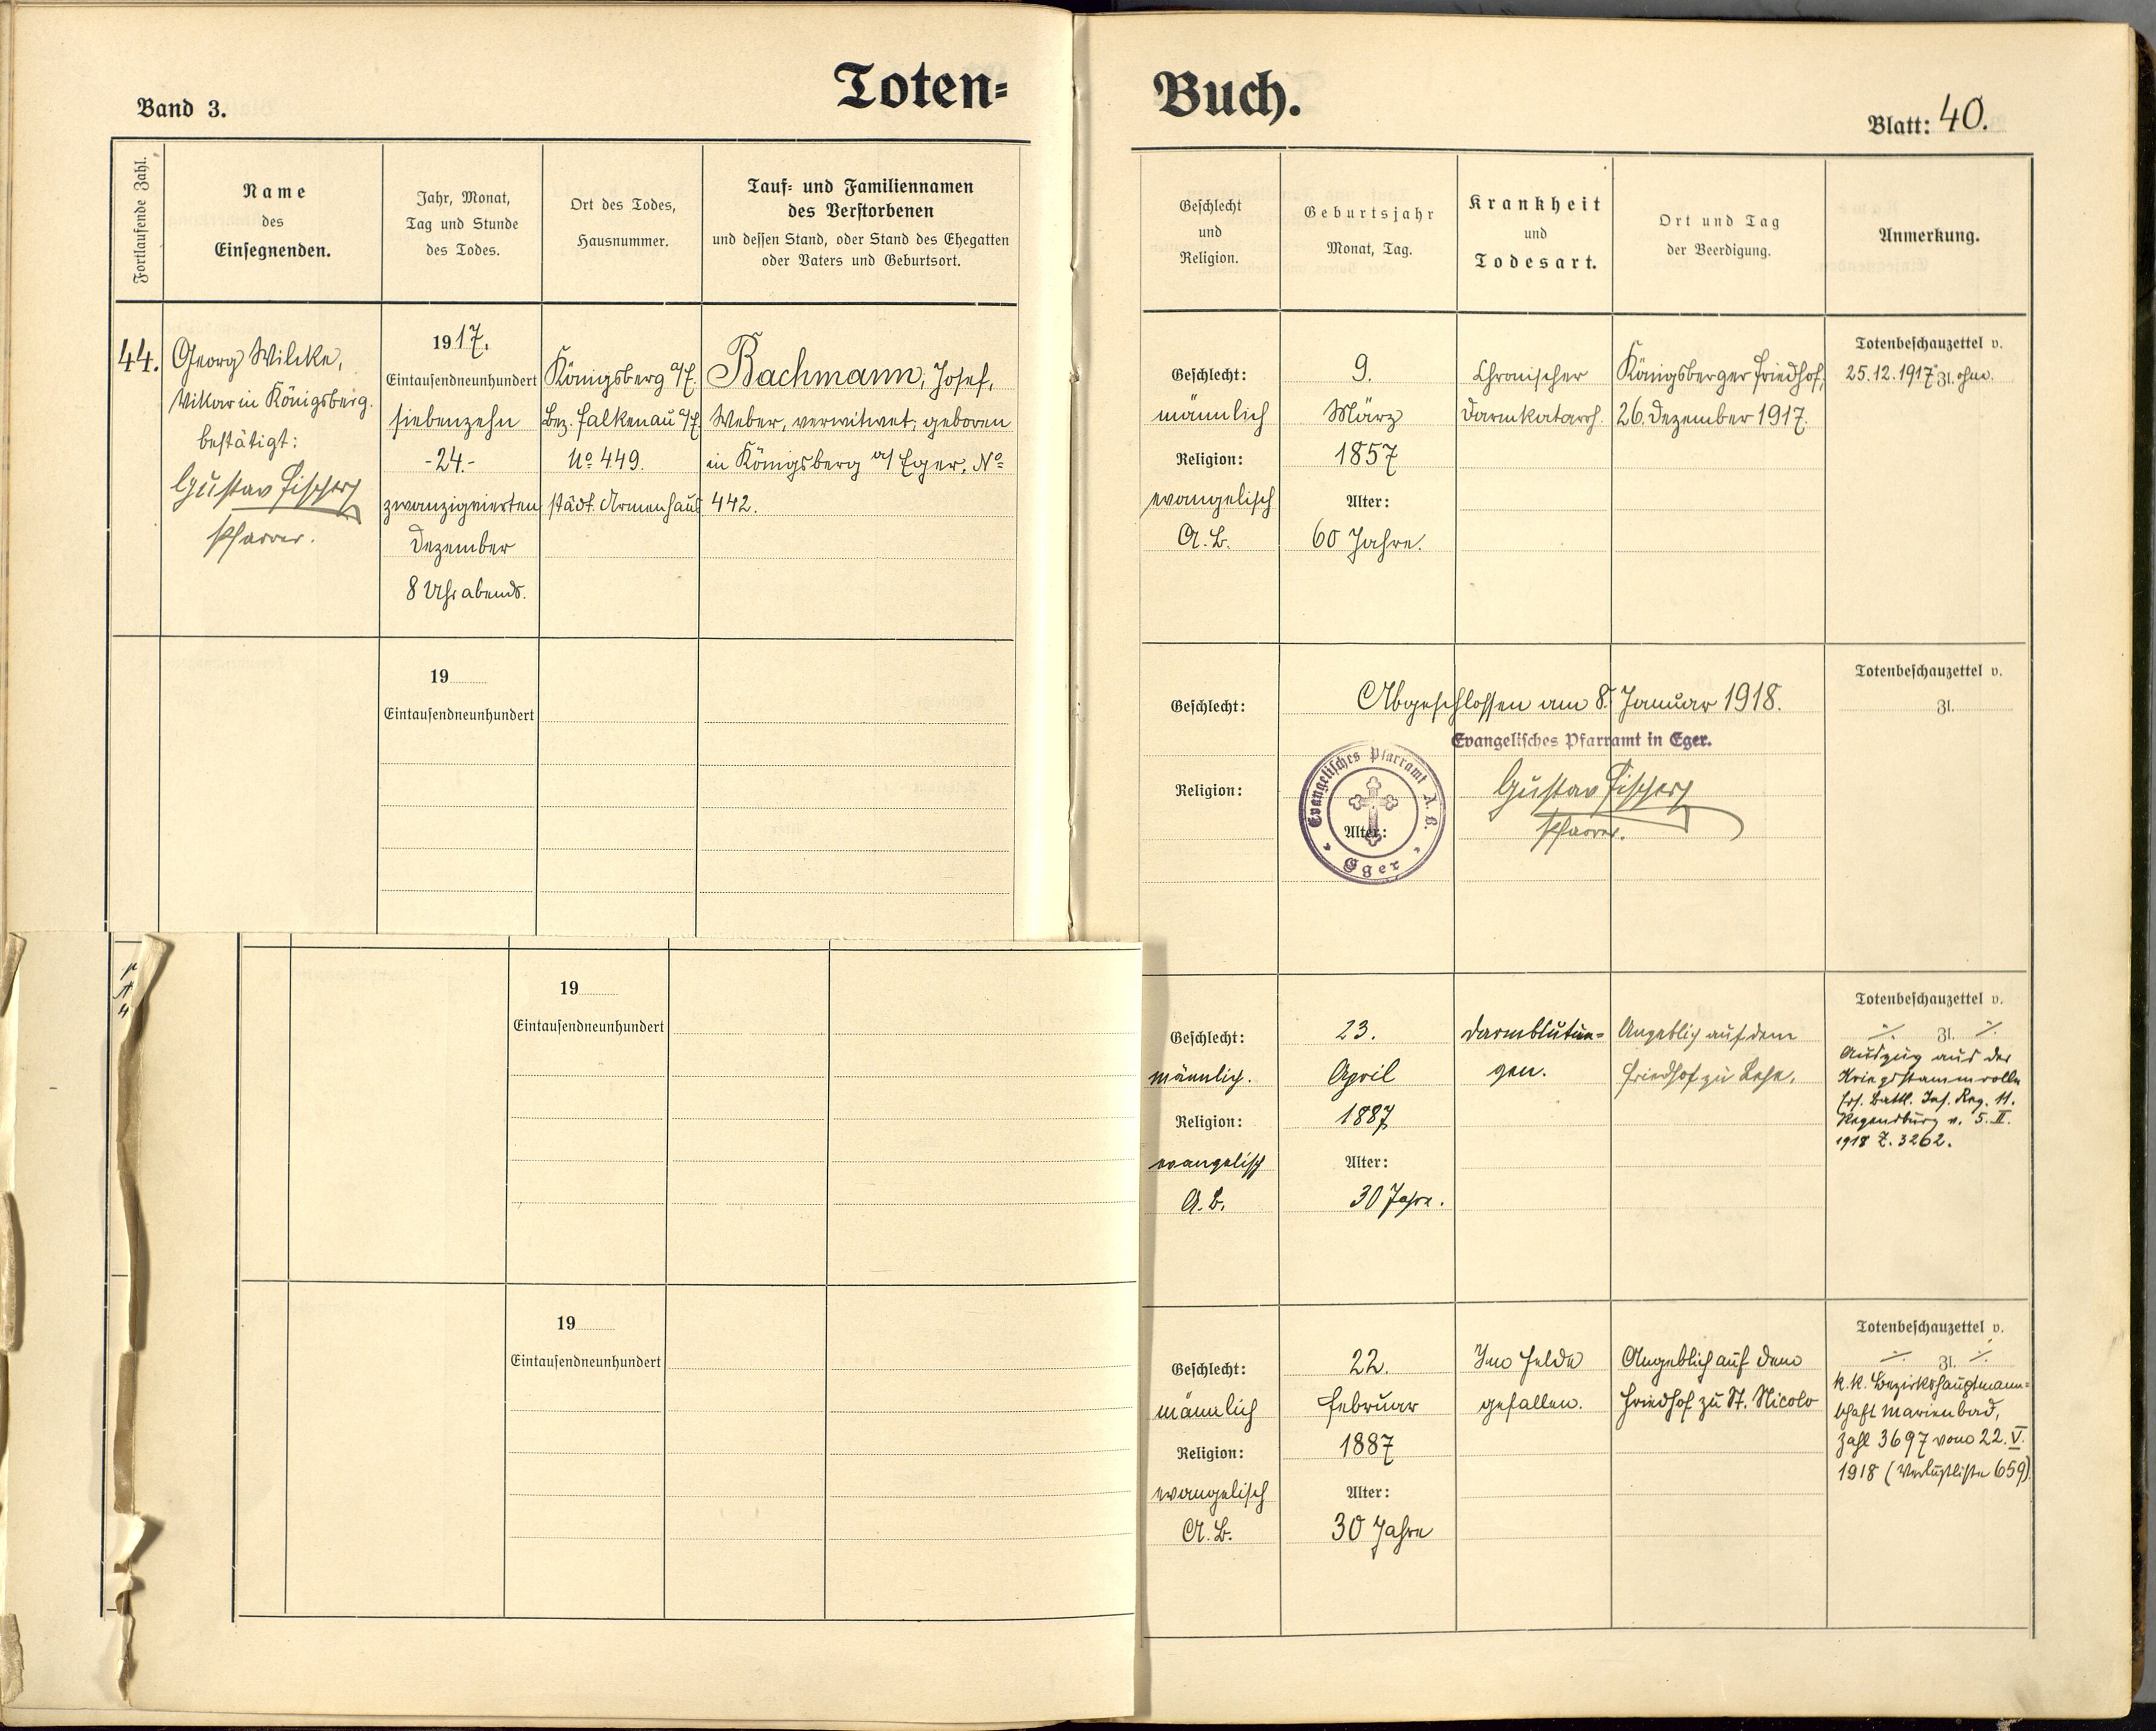 Toten=
Buch.
Band 3.
Blatt: 40.
Fortlaufende Zahl.
Name
des
Einsegnenden.
Jahr, Monat,
Tag und Stunde
des Todes.
Ort des Todes,
Hausnummer.
Tauf= und Familiennamen
des Verstorbenen
und dessen Stand, oder Stand des Ehegatten
oder Vaters und Geburtsort.
Geschlecht
und
Religion.
Geburtsjahr
Monat, Tag.
Krankheit
und
Todesart.
Ort und Tag
der Beerdigung.
Anmerkung.
44.
Georg Wilcke,
Vikar in Königsberg.
bestätigt:
Gustav Fischer
Pfarrer.
1917.
Eintausendneunhundert
siebenzehn
-24.-
zwanzigvierten
Dezember
8 Uhr abends.
Königsberg a/E.
Bez. Falkenau a/E.
No 449.
städt. Armenhaus
Bachmann, Josef,
Weber, verwitwet, geboren
in Königsberg a/ Eger, No
442.
Geschlecht:
männlich
Religion:
evangelisch
A. B.
9.
März
1857
Alter:
60 Jahre.
Chronischer
Darmkatarrh.
Königsberger Friedhof,
26. Dezember 1917.
Totenbeschauzettel v.
25.12.1917 Zl. ohne.
19
Eintausendneunhundert
Geschlecht:
Religion:
Abgeschlossen am 8. Januar 1918.
Evangelisches Pfarramt in Eger.
Evangelisches Pfarramt A. B.
Eger
Alter:
Gustav Fischer
Pfarrer.
Totenbeschauzettel v.
Zl.
19
Eintausendneunhundert
Geschlecht:
männlich.
Religion:
evangelisch
A. B.
23.
April
1887
Alter:
30 Jahre.
Darmblutun=
gen.
Angeblich auf dem
Friedhof zu
Totenbeschauzettel v.
∕. Zl. ∕.
Auszug aus der
Kriegsstammrolle
Ers. Battl. Inf. Reg. 11.
Regensburg v. 5. II.
1918 Z. 3262.
19
Eintausendneunhundert
Geschlecht:
männlich
Religion:
evangelisch
A. B.
22.
Februar
1887
Alter:
30 Jahre
Im Felde
gefallen.
Angeblich auf dem
Friedhof zu St. Nicolo
Totenbeschauzettel v.
∕. Zl. ∕.
k. k. Bezirkshauptmann=
schaft Marienbad,
Zahl 3697 vom 22. V.
1918 (Verlustliste 659).